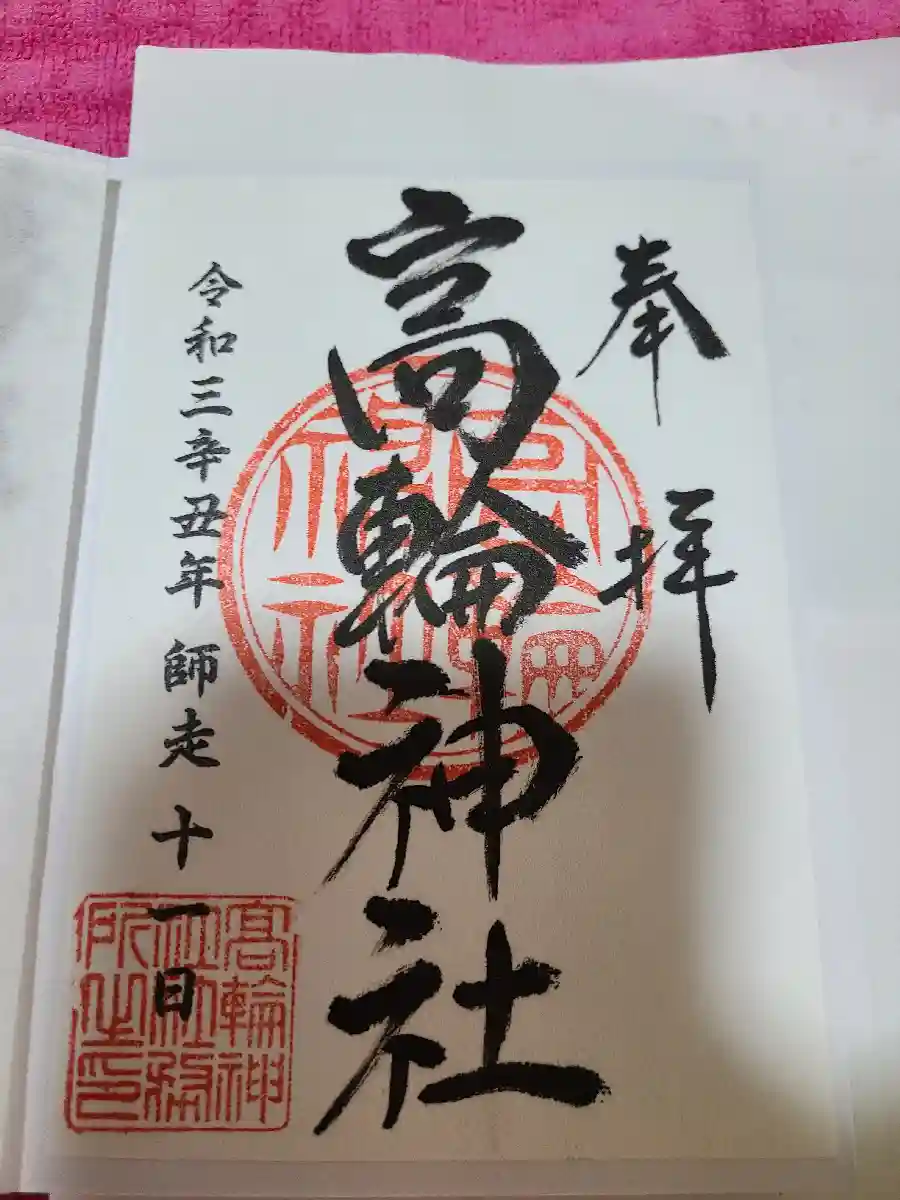 奉拝
高輪神社
令和三辛丑年 師走 十一日
髙輪神社社務所之印